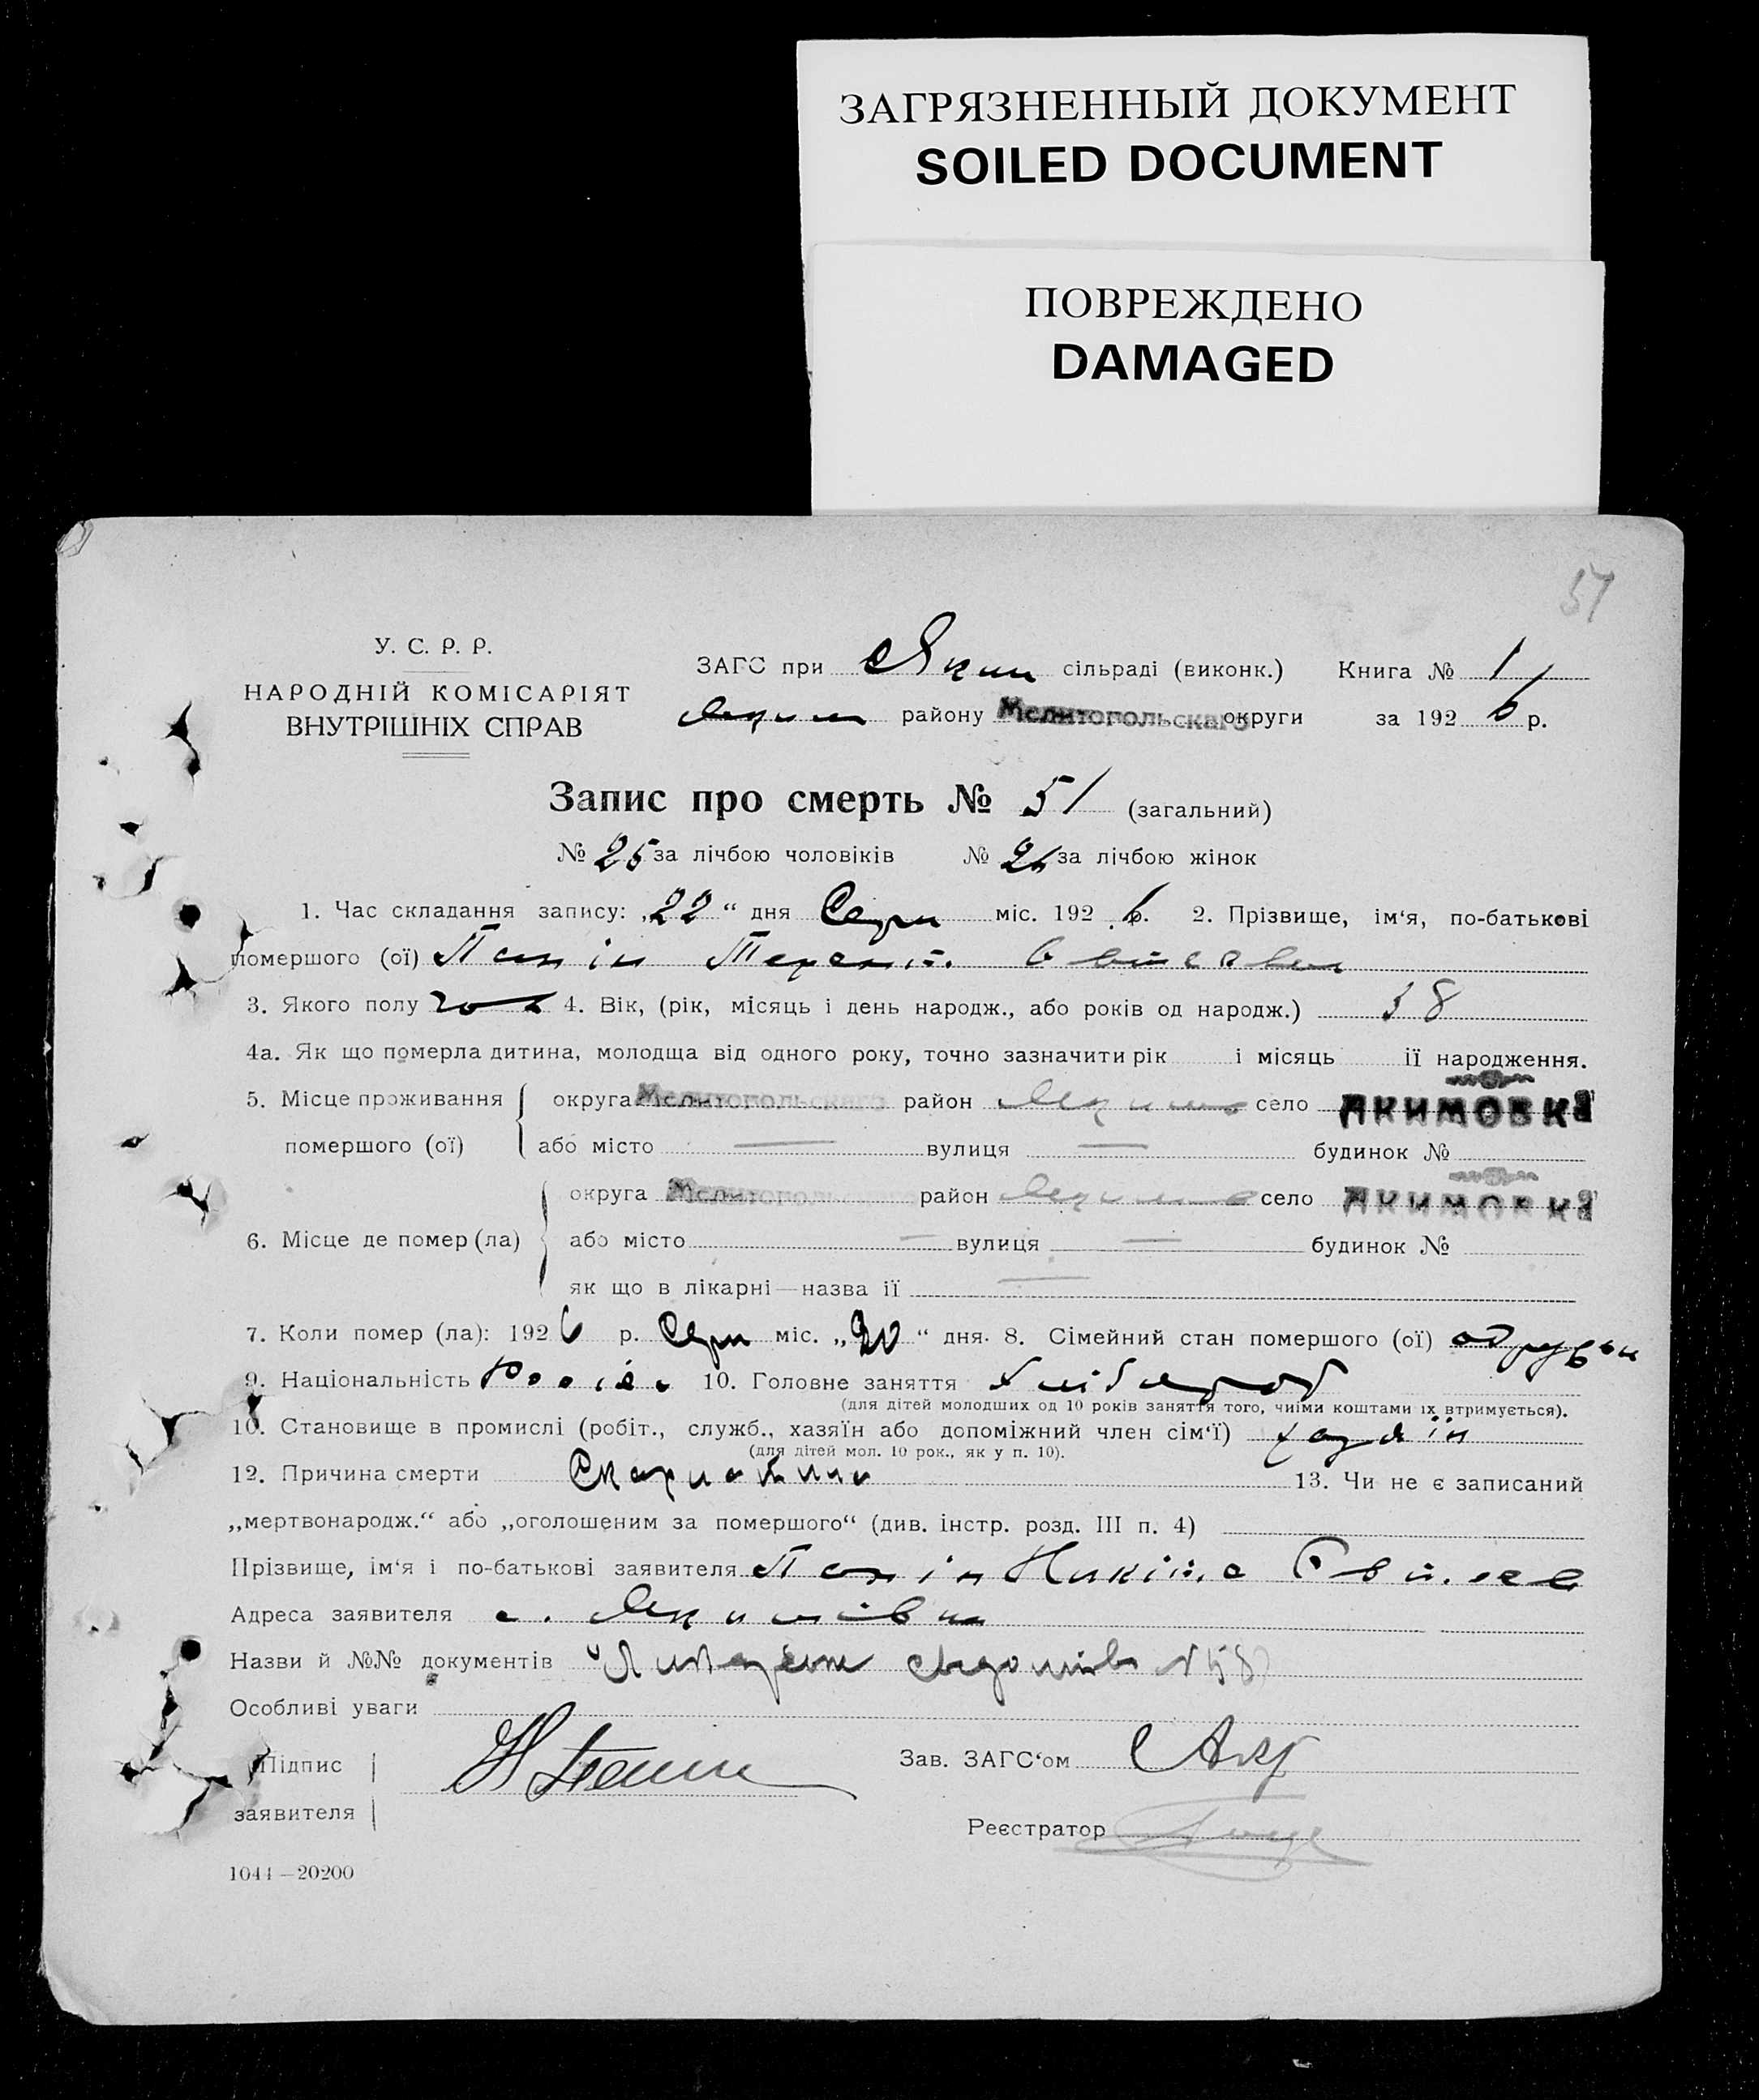 ЗАГРЯЗНЕННЫЙ ДОКУМЕНТ
SOILED DOCUMENT
ПОВРЕЖДЕНО
DAMAGED
51
У. С. Р. Р.
НАРОДНІЙ КОМІСАРІЯТ
ВНУТРІШНІХ СПРАВ
ЗАГС при Яким сільраді (виконк.) Книга № 1
Яким району Мелитопольскаго округи за 1926 р.
Запис про смерть № 51 (загальний)
№ 25 за лічбою чоловіків № 26 за лічбою жінок
1. Час складання запису: „22“ дня Серп міс. 1926. 2. Прізвище, ім‘я, по-батькові
помершого (ої)
3. Якого полу 4. Вік, (рік, місяць і день народж., або років од народж.) 38
4а. Як що померла дитина, молодща від одного року, точно зазначити рік і місяць її народження.
5. Місце проживання помершого (ої) округа Мелитопольскаго район Яким село АКИМОВКА
або місто — вулиця — будинок №
6. Місце де помер (ла) округа Мелитополь район Яким село АКИМОВКА
або місто — вулиця — будинок №
як що в лікарні—назва її —
7. Коли помер (ла): 1926 р. Серп міс. „20“ дня. 8. Сімейний стан помершого (ої)
9. Національність 10. Головне заняття Хлібороб
(для дітей молодших од 10 років заняття того, чиїми коштами їх втримується).
10. Становище в промислі (робіт., служб., хазяїн або допоміжний член сім‘ї) хазяїн
(для дітей мол. 10 рок., як у п. 10).
12. Причина смерти 13. Чи не є записаний
„мертвонародж.“ або „оголошеним за помершого“ (див. інстр. розд. III п. 4)
Прізвище, ім‘я і по-батькові заявителя Никіта
Адреса заявителя с. Якимівка
Назви й №№ документів
Особливі уваги
Підпис заявителя
Зав. ЗАГС‘ом
Реєстратор
1044—20200